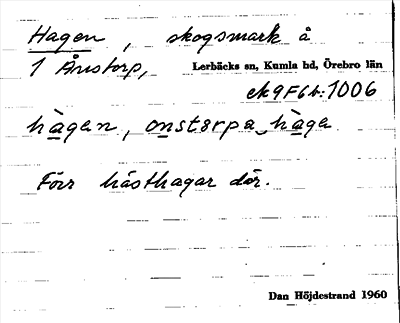 Hagen, skogsmark å
1 Ånstorp, Lerbäcks sn, Kumla hd, Örebro län
ek 9F6b:1006
hàgen, ònstɜrpa hàga
Förr hästhagar där.
Dan Höjdestrand 1960